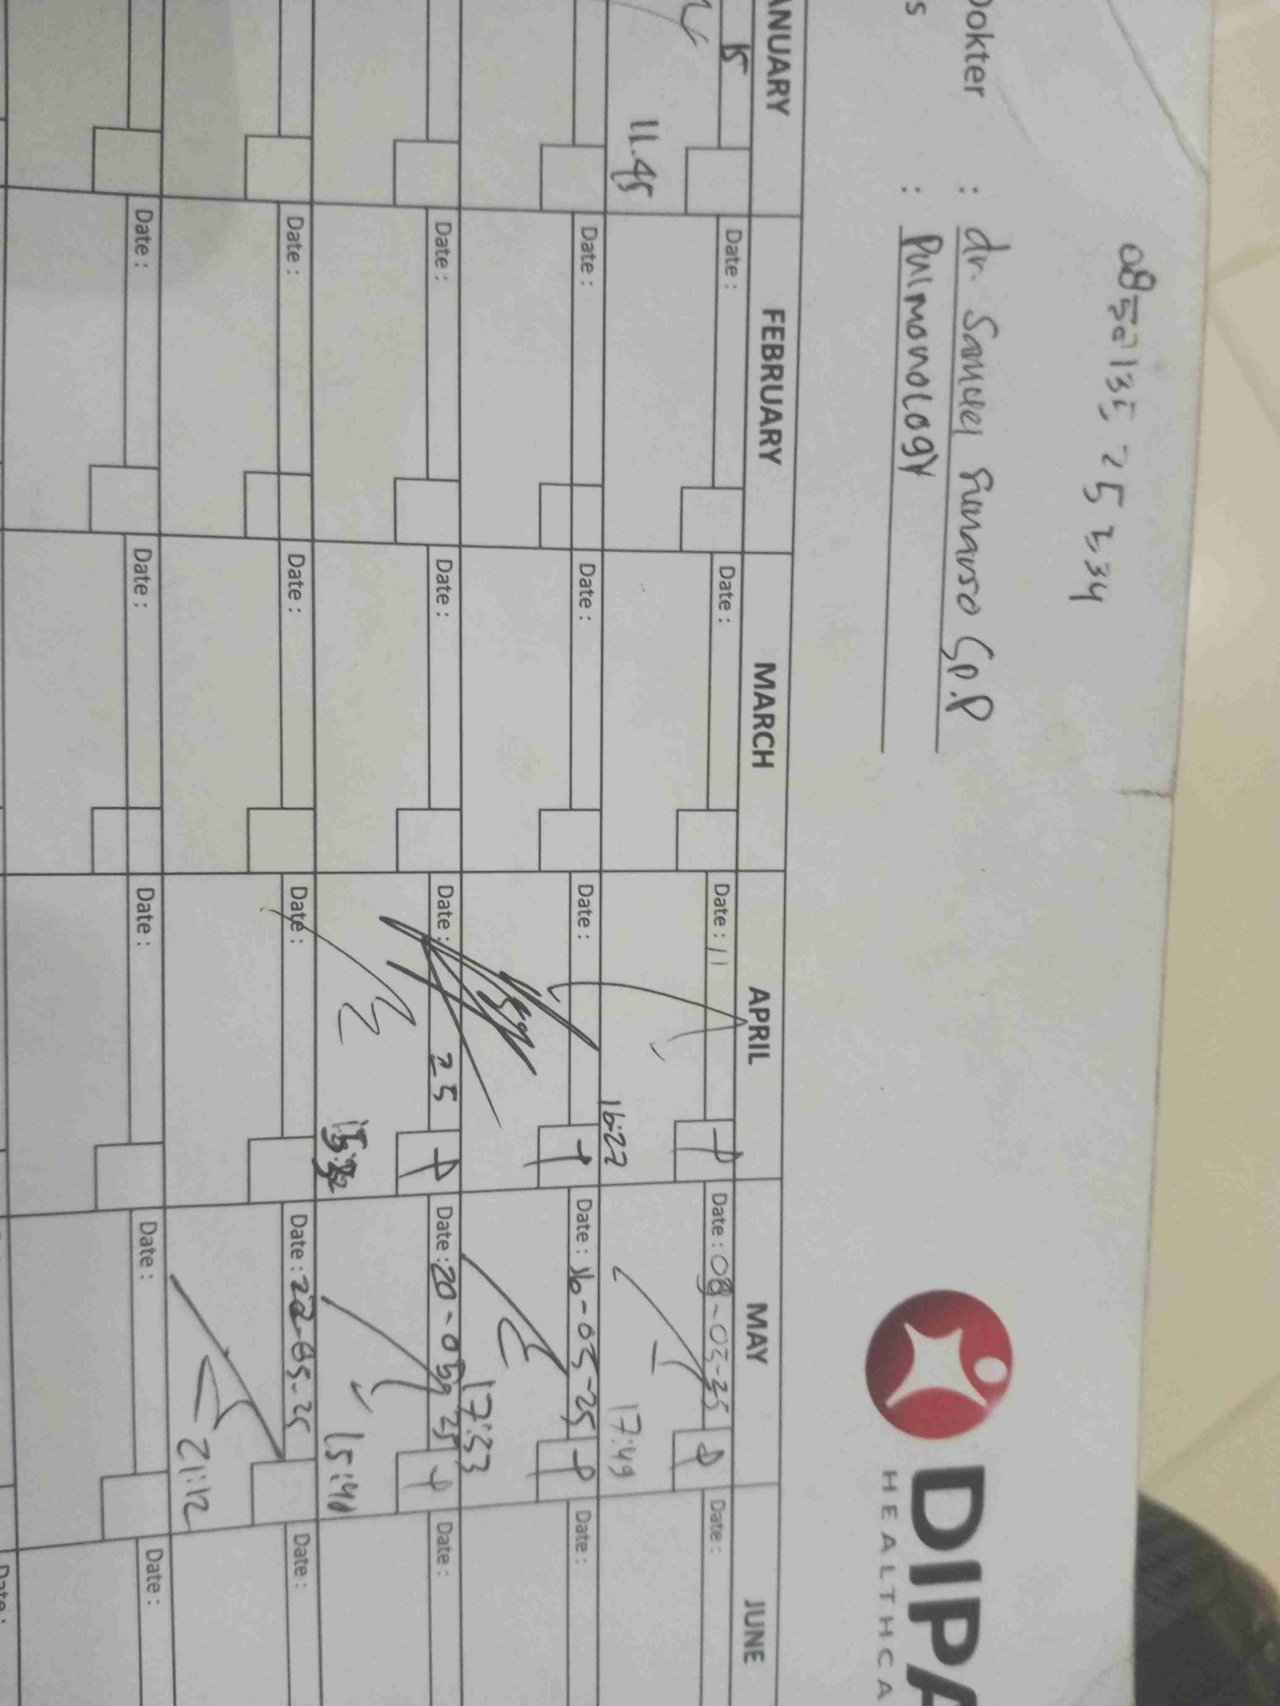 DIPA
HEALTHCA
Dokter : dr. Samuel Sunarso Sp.P
s : Pulmonology
ANUARY FEBRUARY MARCH APRIL MAY JUNE
15 Date : Date : Date : 11 Date : 08-05-25 Date :
11.45 16:27 17:49
Date : Date : Date : Date : 16-05-25 Date :
17:33
Date : Date : Date : 25 Date : 20-05-25 Date :
15:40
Date : Date : Date : Date : 22-05-25 Date :
21:12
Date : Date : Date : Date : Date :
Date :